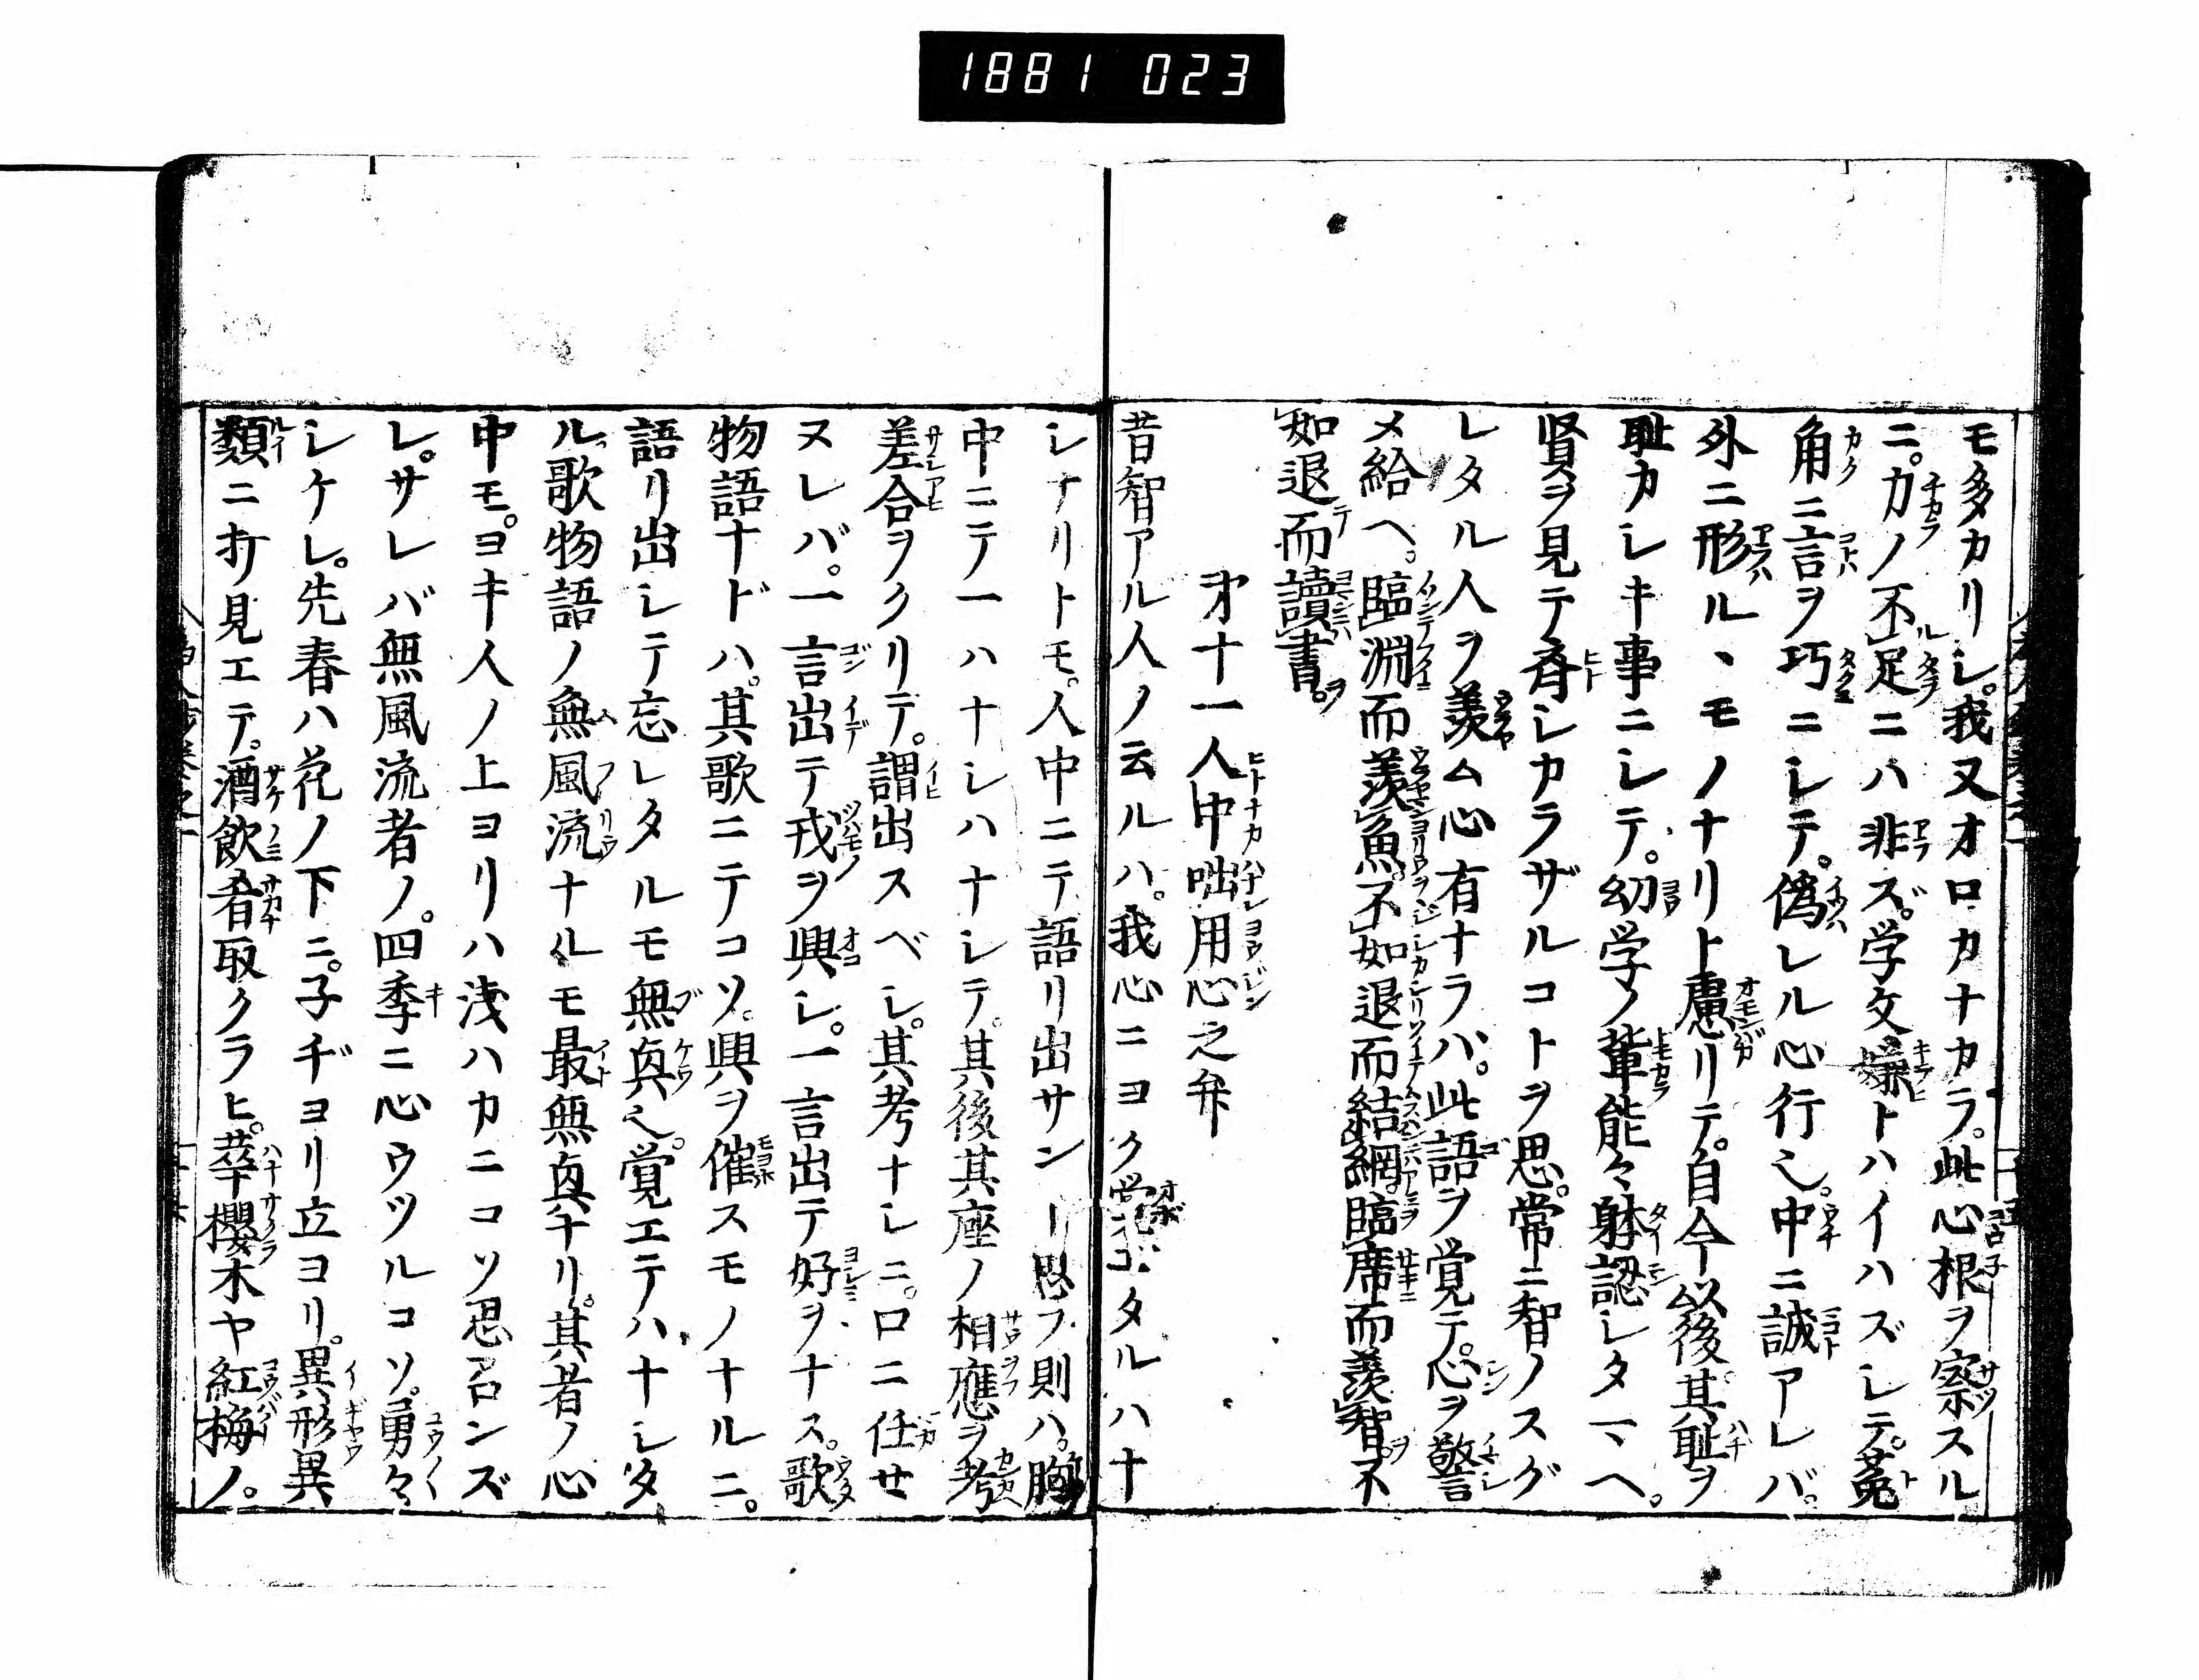 1881 023
モ多カリシ。我又オロカナカラ。此心根ヲ察スル
ニ。力ノ不足ニハ非ズ。学文嫌トハイハズシテ。菟
角ニ言ヲ巧ニシテ。偽レル心行也。中ニ誠アレバ。
外ニ形ル、モノナリト慮リテ。自今以後其耻ヲ
耻カシキ事ニシテ。幼学ノ輩能々躰認シタマヘ。
賢ヲ見テ斉シカラザルコトヲ思。常ニ智ノスグ
レタル人ヲ羨ム心有ナラハ。此語ヲ覚テ。心ヲ警
メ給ヘ。臨淵而羨魚。不如退而結網。臨席而羨智。不
如退而讀書。
才十一人中咄用心之弁
昔智アル人ノ云ルハ。我心ニヨク覚ゴタルハナ
シナリトモ。人中ニテ語リ出サン思フ則ハ。胸
中ニテ一ハナシハナシテ。其後其座ノ相應ヲ考
差合ヲクリテ。謂出スベシ。其考ナシニ。口ニ任セ
ヌレバ。一言出テ戎ヲ興シ。一言出テ好ヲナス。歌
物語ナドハ。其歌ニテコソ。興ヲ催スモノナルニ。
語リ出シテ忘レタルモ無興也。覚エテハナシタ
ル歌物語ノ無風流ナルモ最無興ナリ。其者ノ心
中モ。ヨキ人ノ上ヨリハ浅ハカニコソ思召ンズ
レ。サレバ無風流者ノ。四季ニ心ウツルコソ。勇々
シケレ。先春ハ花ノ下ニ。子ヂヨリ立ヨリ。異形異
類ニオ見エテ。酒飲肴取クラヒ。華櫻木ヤ紅梅ノ。